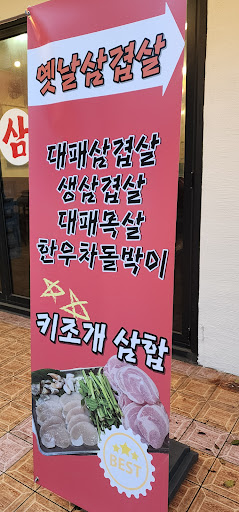 옛날삼겹살
삼
대패삼겹살
생삼겹살
대패목살
한우차돌박이
키조개 삼합
BEST